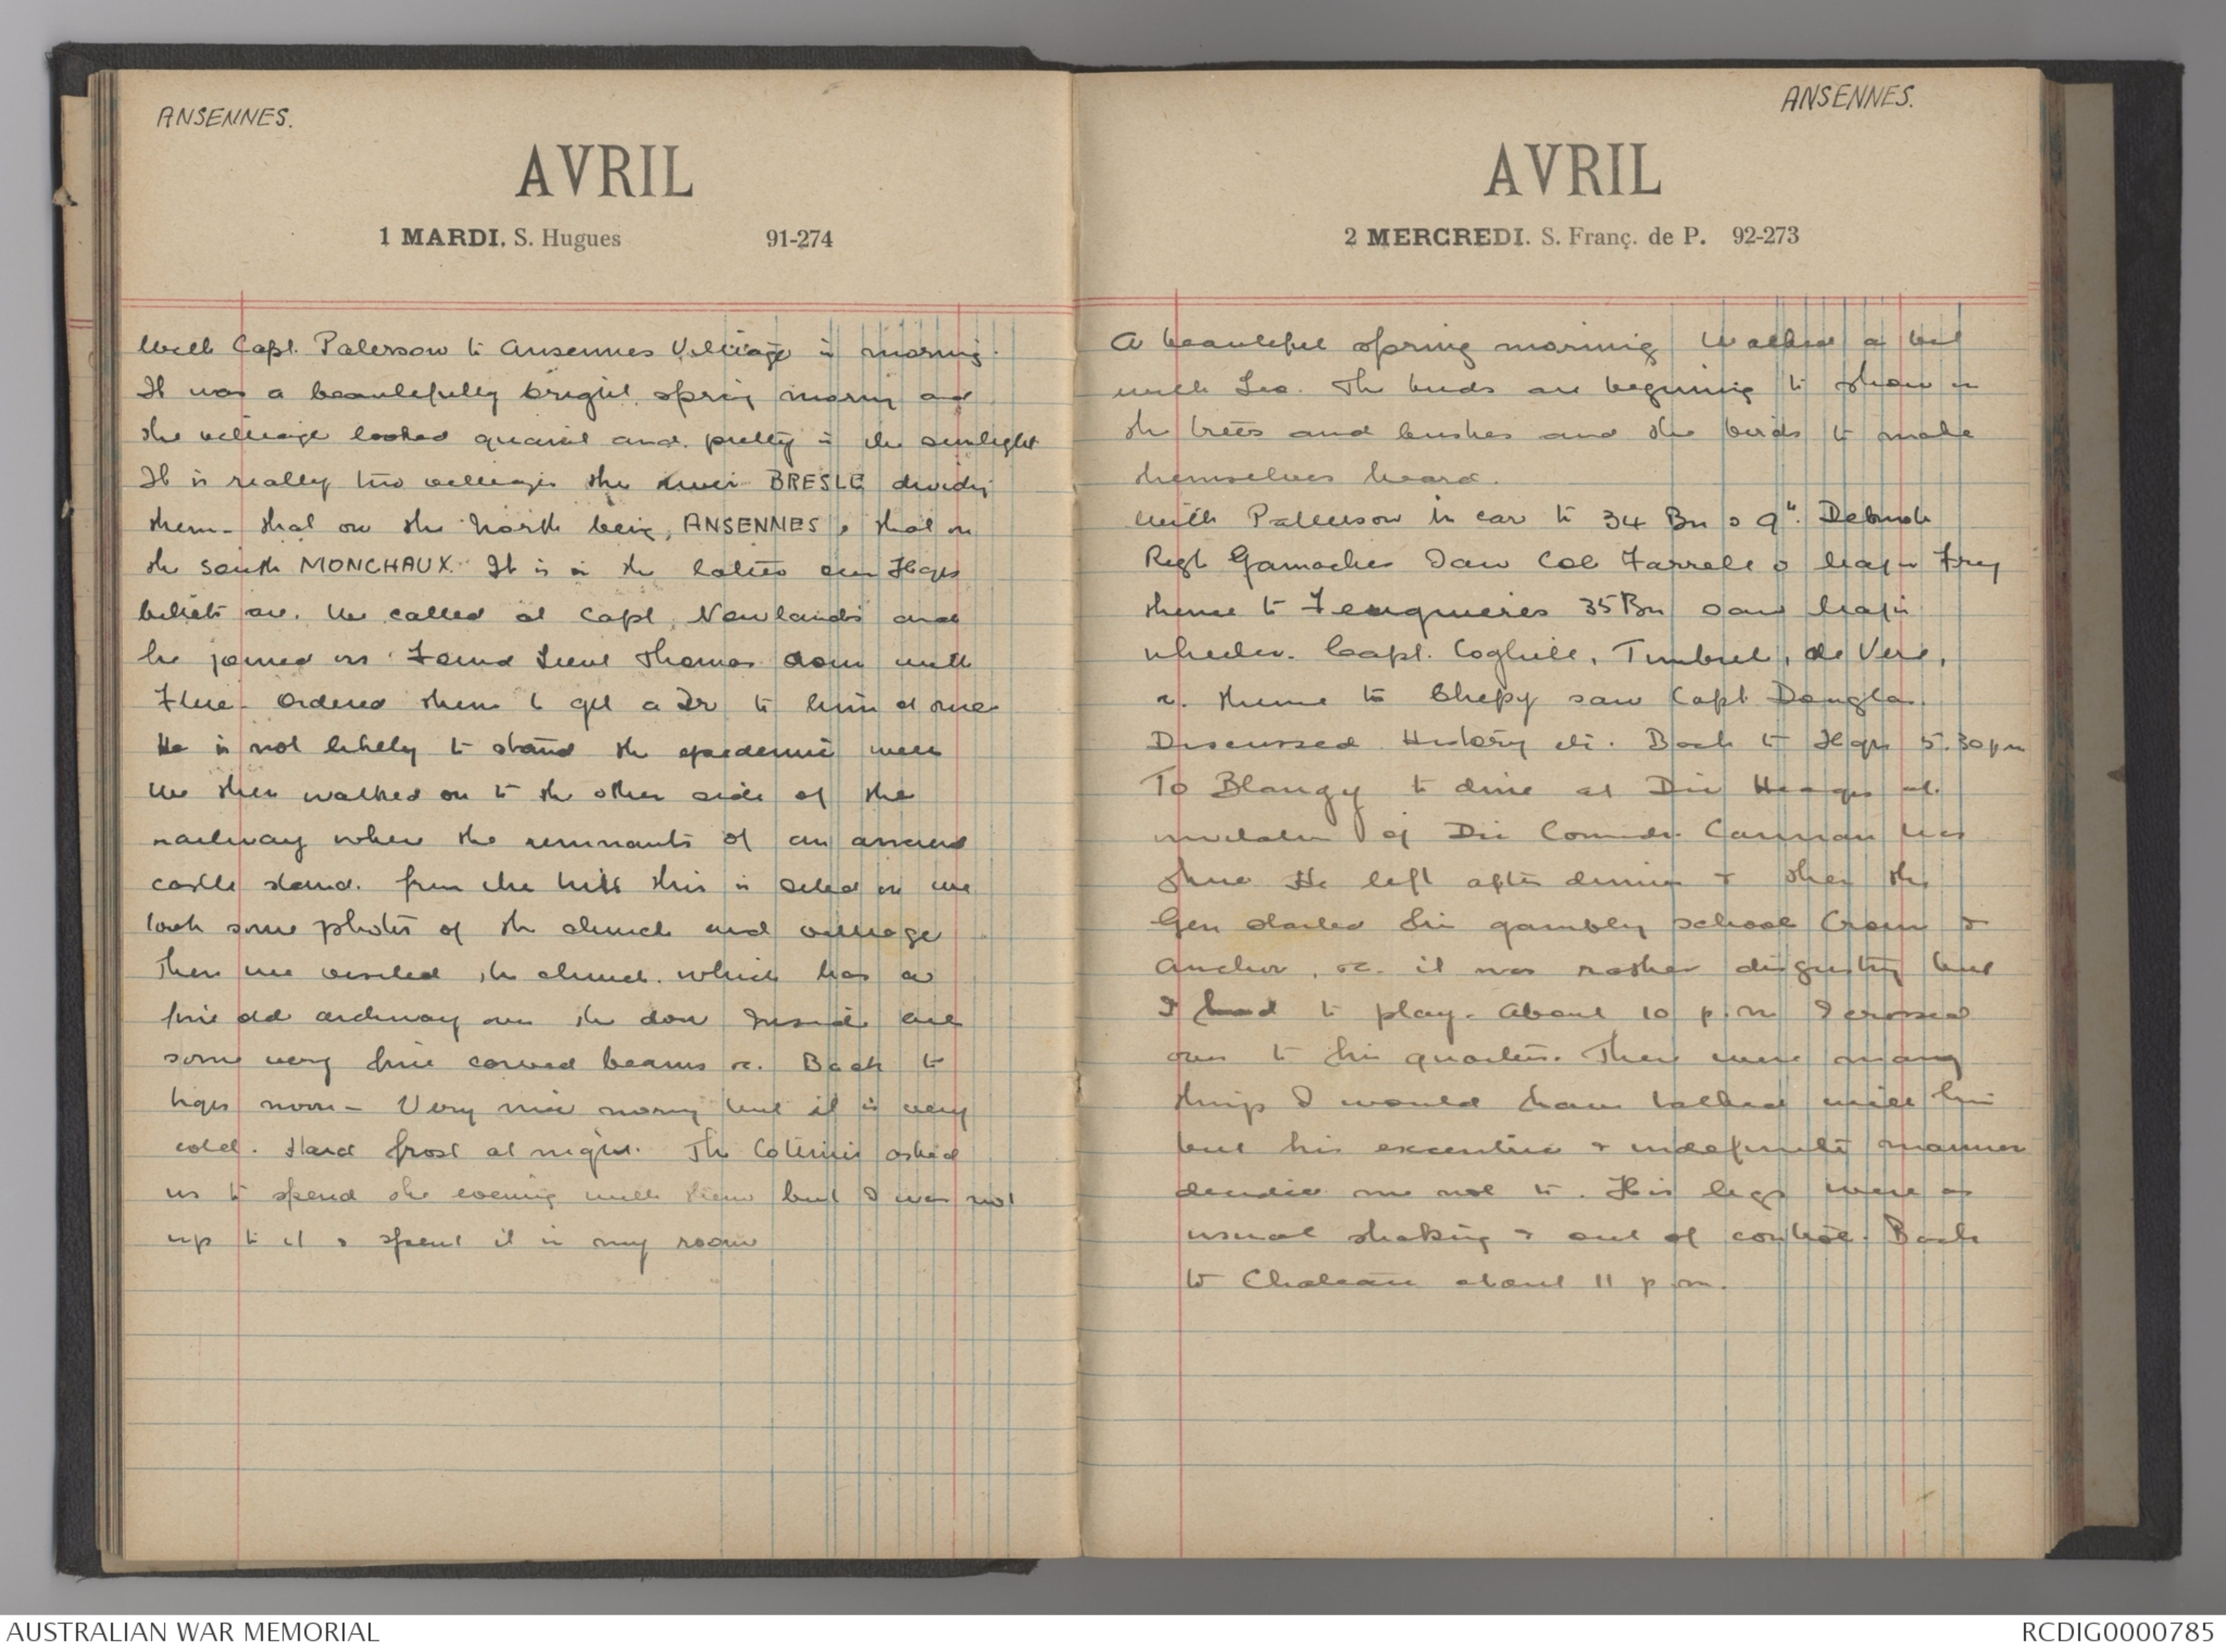 ANSENNES.
AVRIL
1 MARDI, S. Hugues 91-274
With Capt. Paterson to Ansennes Village in morning.
It was a beautifully bright spring morng and
the village looked quaint and pretty in the sunlight
It is really two villages the river BRESLE dividg
them - that on the North being ANSENNES & that on
the south MONCHAUX. It is in the latter our Hqrs
billets are. We called at Capt Newlands and
he joined us. Found Lieut Thomas down with
Flue. Ordered them to get a Dr to him at once
He is not likely to stand the epidemic well
We then walked on to the other side of the
railway where the remnants of an ancient
castle stand. from the hill this is on we
took some photos of the church and village
Then we visited the church which has a
fine old archway over the door Inside are
some very fine carved beams &c. Back to
hqrs noon - Very nice morng but it is very
cold. Hard frost at night. The asked
us to spend the evening with them but I was not
up to it & spent it in my room
ANSENNES.
AVRIL
2 MERCREDI. S. Franç. de P. 92-273
A beautiful spring morning Walked a bit
with Leo. The buds are beginning to show in
the trees and bushes and the birds to make
themselves heard.
With Patterson in car to 34 Bn &
Regt Gamaches Saw Col Farrell & Major Fry
thence to Feuquieres 35 Bn saw Major
Wheeler. Capt. Coghill, Timbrel, de Vere,
&. thence to Chepy saw Capt Douglas.
Discussed History etc. Back to Hqrs 5.30 pm
To Blangy to dine at Div Hqrs at
invitation of Div Comdr. Cannan was
there He left after dinner & then the
Gen started his gambling school Crown &
Anchor, &c. it was rather disgusting but
I had to play. About 10 p.m I crossed
over to his quarters. There were many
things I would have talked with him
but his eccentric & indefinite manner
decided me not to. His legs were as
usual shaking & out of control. Back
to Chateau about 11 p.m.
AUSTRALIAN WAR MEMORIAL
RCDIG0000785